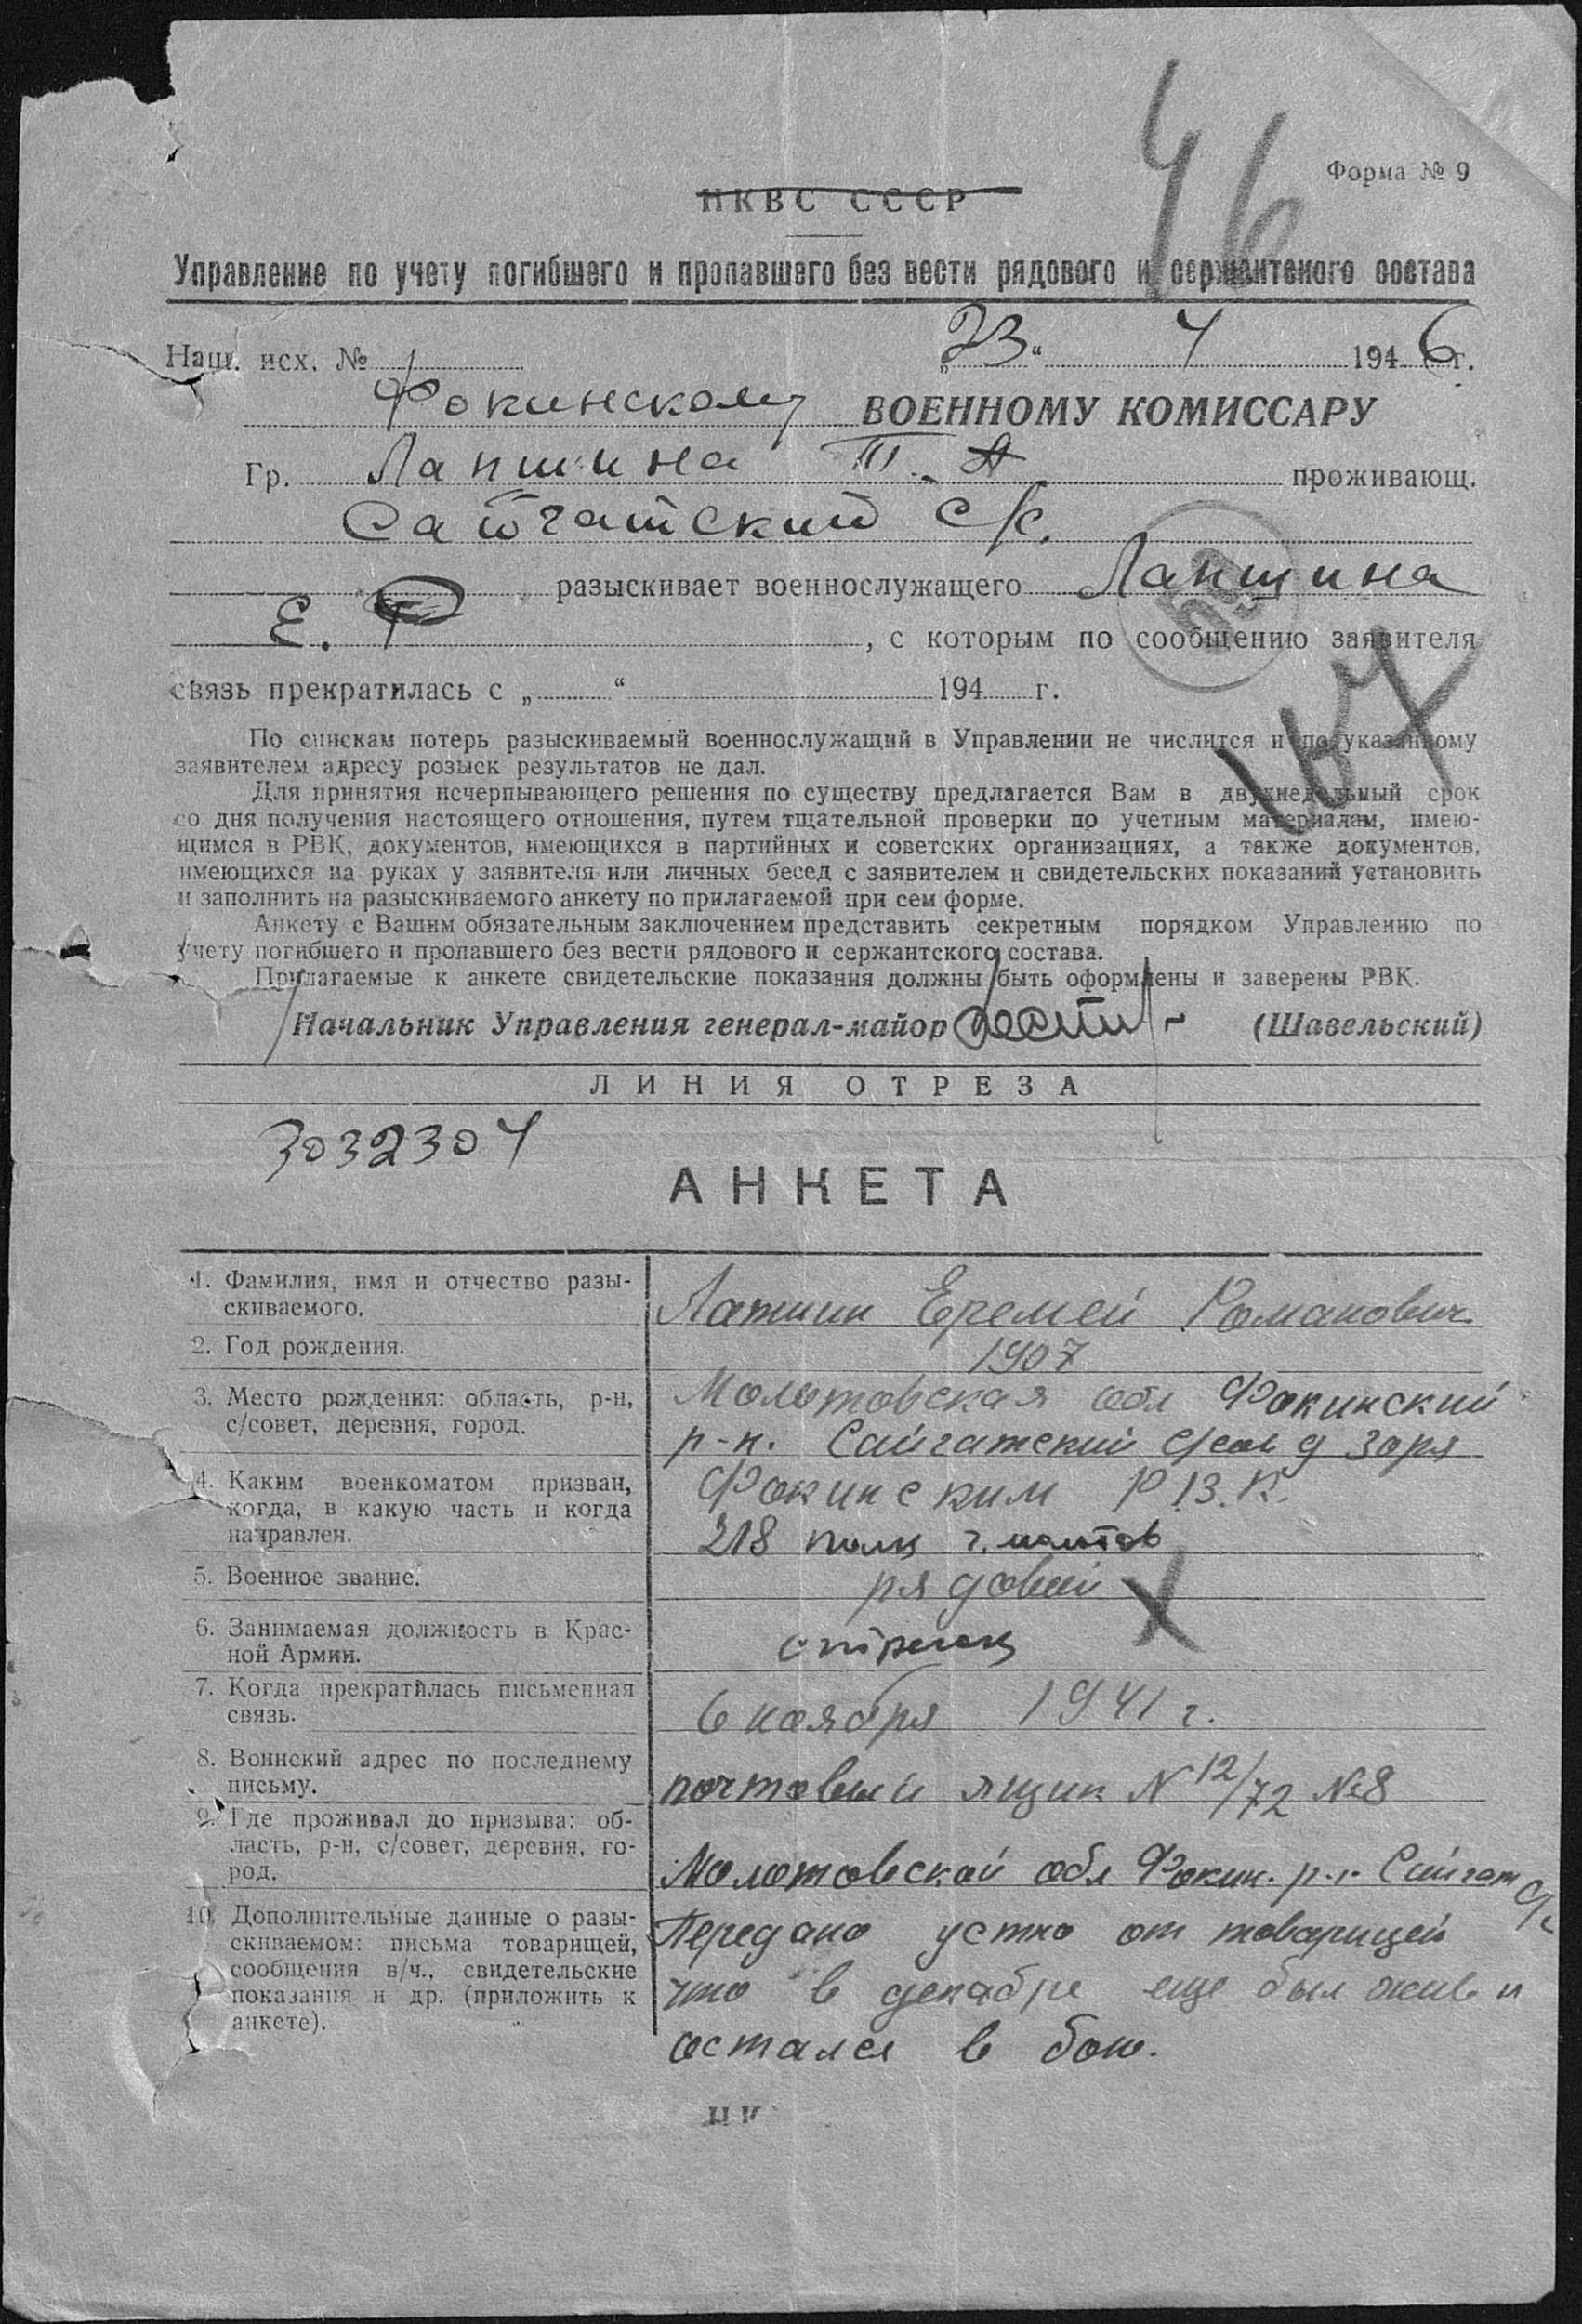 46
Форма № 9
НКВС СССР
Управление по учету погибшего и пропавшего без вести рядового и сержантского состава
Наш. исх. № „23“ 4 1946 г.
Фокинскому ВОЕННОМУ КОМИССАРУ
Гр. Лапшина Т. А проживающ.
Сайгатский с/с.
разыскивает военнослужащего Лапшина
Е. Р , с которым по сообщению заявителя
связь прекратилась с „ “ 194 г.
По спискам потерь разыскиваемый военнослужащий в Управлении не числится и по указанному
заявителем адресу розыск результатов не дал.
Для принятия исчерпывающего решения по существу предлагается Вам в двухнедельный срок
со дня получения настоящего отношения, путем тщательной проверки по учетным материалам, имею-
щимся в РВК, документов, имеющихся в партийных и советских организациях, а также документов,
имеющихся на руках у заявителя или личных бесед с заявителем и свидетельских показаний установить
и заполнить на разыскиваемого анкету по прилагаемой при сем форме.
Анкету с Вашим обязательным заключением представить секретным порядком Управлению по
учету погибшего и пропавшего без вести рядового и сержантского состава.
Прилагаемые к анкете свидетельские показания должны быть оформлены и заверены РВК.
Начальник Управления генерал-майор (Шавельский)
ЛИНИЯ ОТРЕЗА
3032304
АНКЕТА
1. Фамилия, имя и отчество разы-
скиваемого.
Лапшин Еремей Романович
2. Год рождения.
1907
3. Место рождения: область, р-н,
с/совет, деревня, город.
Молотовская обл Фокинский
р-н. Сайгатский с/сов д Заря
4. Каким военкоматом призван,
когда, в какую часть и когда
направлен.
Фокинским Р.В.К.
218 полк г. Молотов
5. Военное звание.
рядовой
6. Занимаемая должность в Крас-
ной Армии.
стрелок
7. Когда прекратилась письменная
связь.
6 ноября 1941 г.
8. Воинский адрес по последнему
письму.
почтовый ящик N 12/72 №8
9. Где проживал до призыва: об-
ласть, р-н, с/совет, деревня, го-
род.
Молотовской обл Фокин. р-н Сайгат с/с
10. Дополнительные данные о разы-
скиваемом: письма товарищей,
сообщения в/ч., свидетельские
показания и др. (приложить к
анкете).
Передано устно от товарищей
что в декабре еще был жив и
остался в бою.